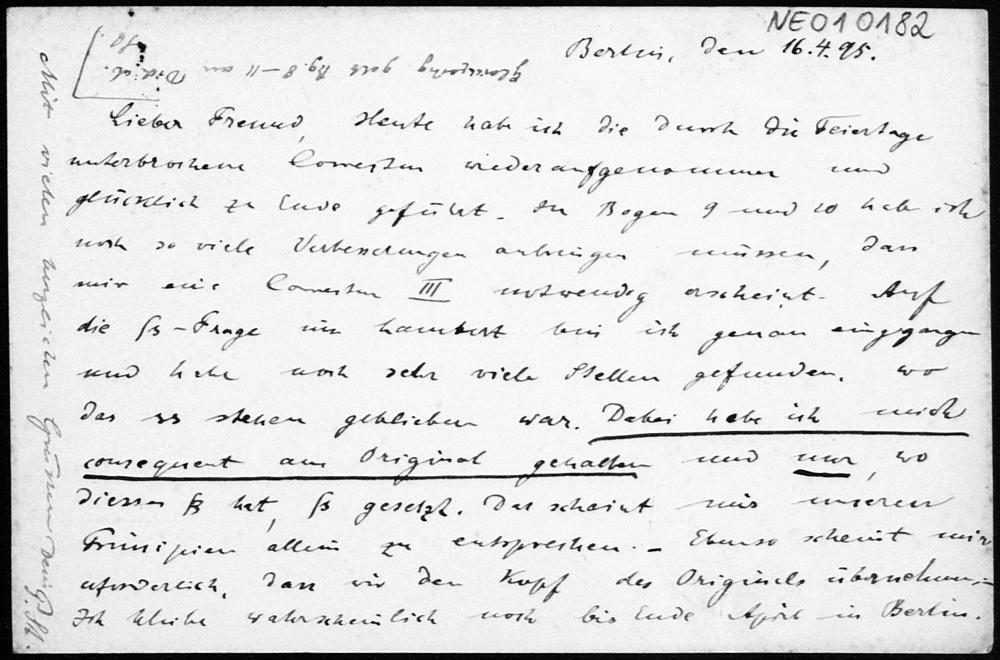 NE010182
Berlin, den 16.4.95.
Lieber Freund, Heute habe ich die durch die Feiertage
unterbrochene Correctur wiederaufgenommen und
glücklich zu Ende geführt. In Bogen 9 und 10 habe ich
noch so viele Verbesserungen anbringen müssen, dass
mir eine Correctur III notwendig erscheint. Auf
die ß-Frage im Lambert bin ich genau eingegangen
und habe noch sehr viele Stellen gefunden, wo
das ss stehen geblieben war. Dabei habe ich mich
consequent ans Original gehalten und nur, wo
dieses ß hat, ß gesetzt. Das scheint mir unseren
Prinzipien allein zu entsprechen. – Ebenso scheint mir
erforderlich, dass wir den Kopf des Originals übernehmen. –
Ich bleibe wahrscheinlich noch bis Ende April in Berlin.
Mit vielen herzlichen Grüssen Dein P. St.
Bg. 8–11 an